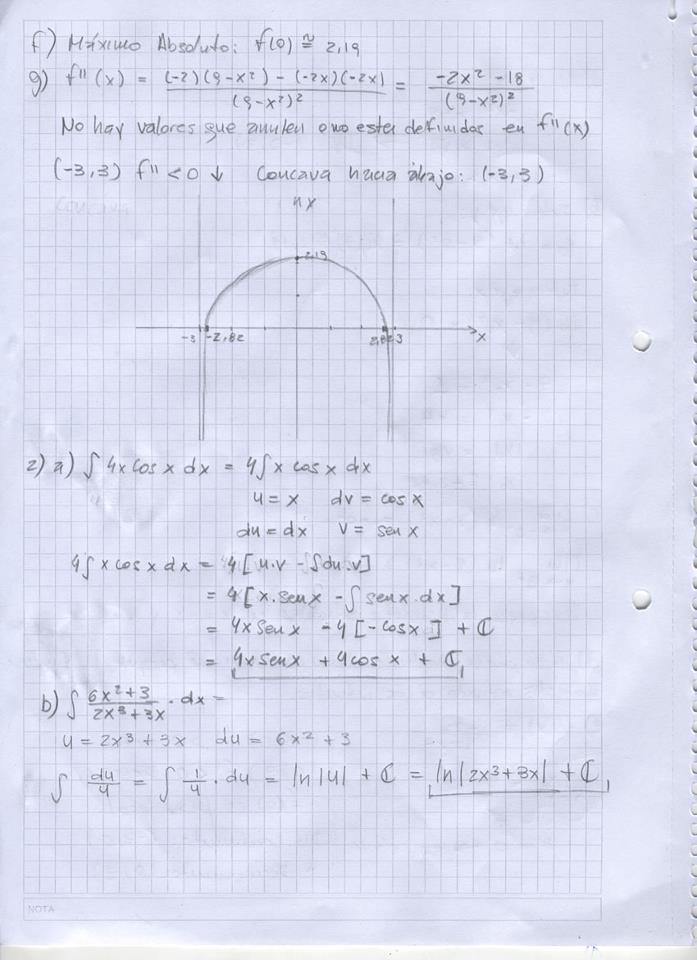 f) Máximo Absoluto: f(0) ≅ 2,19
g) f''(x) = (-2)(9-x²) - (-2x)(-2x) / (9-x²)² = -2x² - 18 / (9-x²)²
No hay valores que anulen o no esten definidos en f''(x)
(-3,3) f'' < 0 ↓ Concava hacia abajo: (-3,3)
2,19
-3 -2,82 2,82 3 x
2) a) ∫ 4x cos x dx = 4∫ x cos x dx
u = x dv = cos x
du = dx v = sen x
4∫ x cos x dx = 4[u.v - ∫du.v]
= 4[x.sen x - ∫ sen x.dx]
= 4x sen x - 4[-cos x] + ℂ
= 4x sen x + 4cos x + ℂ
b) ∫ 6x²+3 / 2x³+3x . dx =
u = 2x³ + 3x du = 6x² + 3
∫ du/u = ∫ 1/u . du = ln|u| + ℂ = ln|2x³+3x| + ℂ
NOTA